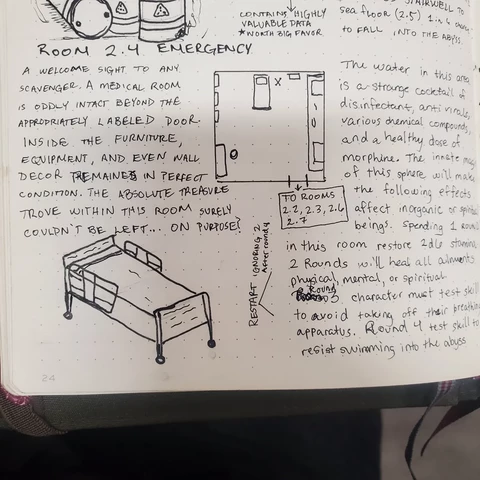 CONTAINS HIGHLY
VALUABLE DATA
*WORTH BIG FAVOR
STAIRWELL TO
sea floor (2.5) 1 in 6 chance
to FALL INTO THE ABYSS
ROOM 2.4 EMERGENCY
A WELCOME SIGHT TO ANY
SCAVENGER. A MEDICAL ROOM
IS ODDLY INTACT BEYOND THE
APPROPRIATELY LABELED DOOR.
INSIDE THE FURNITURE,
EQUIPMENT, AND EVEN WALL
DECOR REMAINES IN PERFECT
CONDITION. THE ABSOLUTE TREASURE
TROVE WITHIN THIS ROOM SURELY
COULDN'T BE LEFT... ON PURPOSE?
X
TO ROOMS
2.2, 2.3, 2.6
2.7
RESTART IGNORING 2
After round 4
The water in this area
is a strange cocktail of
disinfectant, antivirals,
various chemical compounds,
and a healthy dose of
morphine. The innate
of this sphere will make
the following effects
affect inorganic or spiritual
beings. Spending 1 Round
in this room restore 2d6 stamina
2 Rounds will heal all ailments
physical, mental, or spiritual.
Round 3 character must test skill
to avoid taking off their breathing
apparatus. Round 4 test skill to
resist swimming into the abyss
24